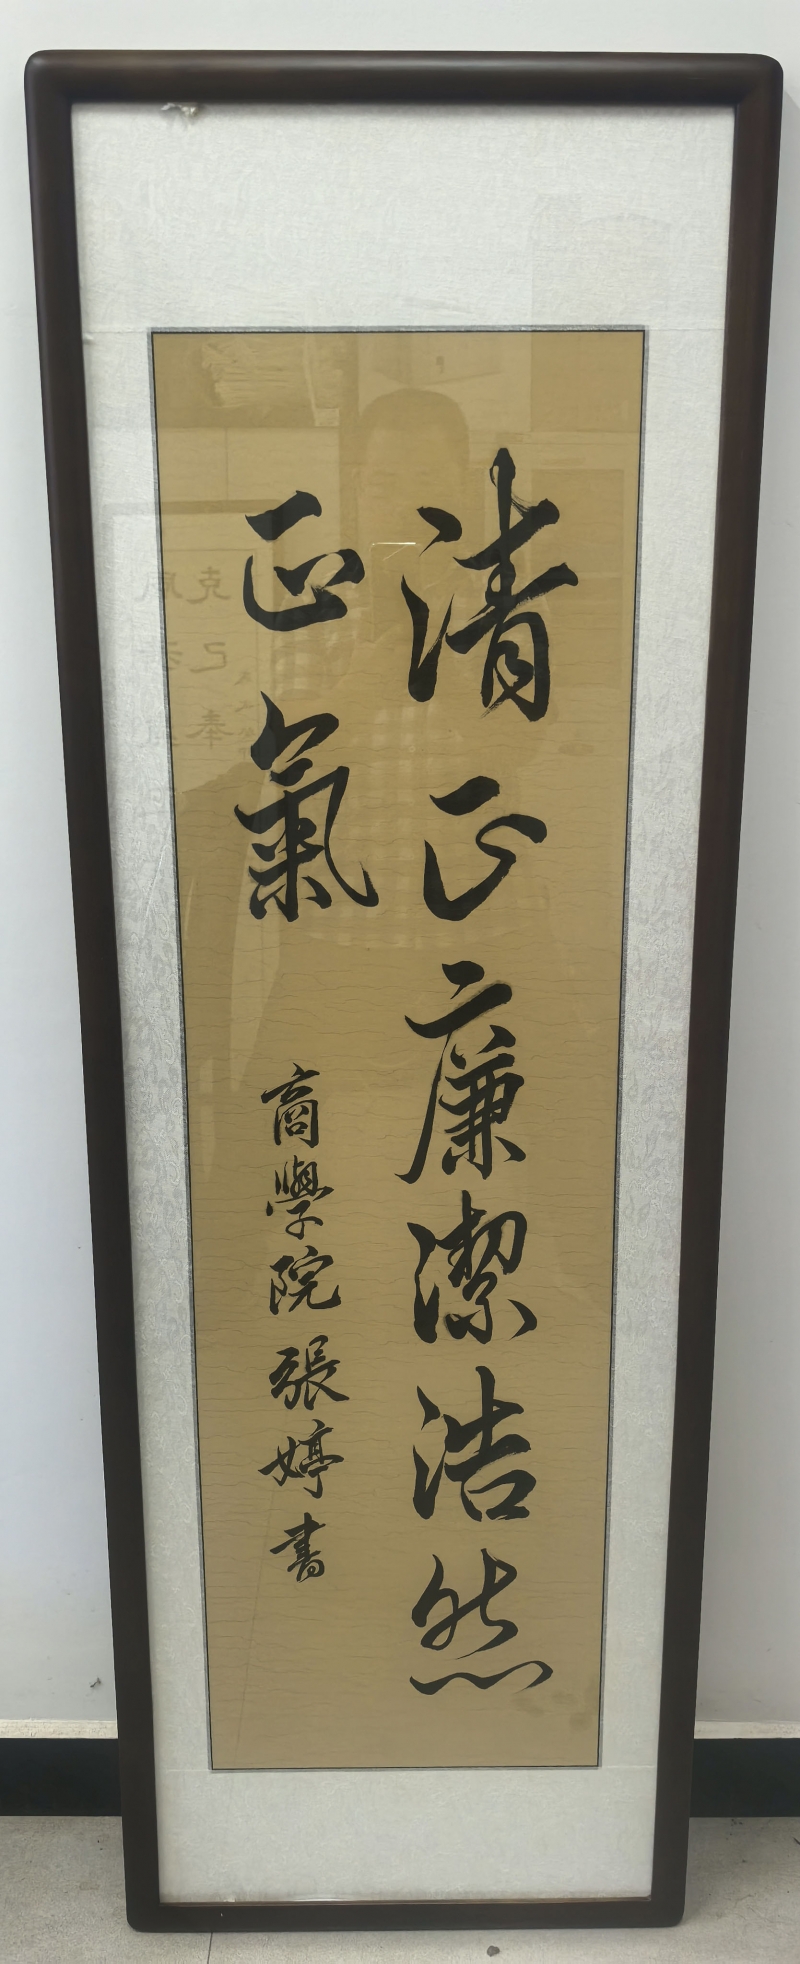 清正廉潔浩然
正氣
商學院張婷書